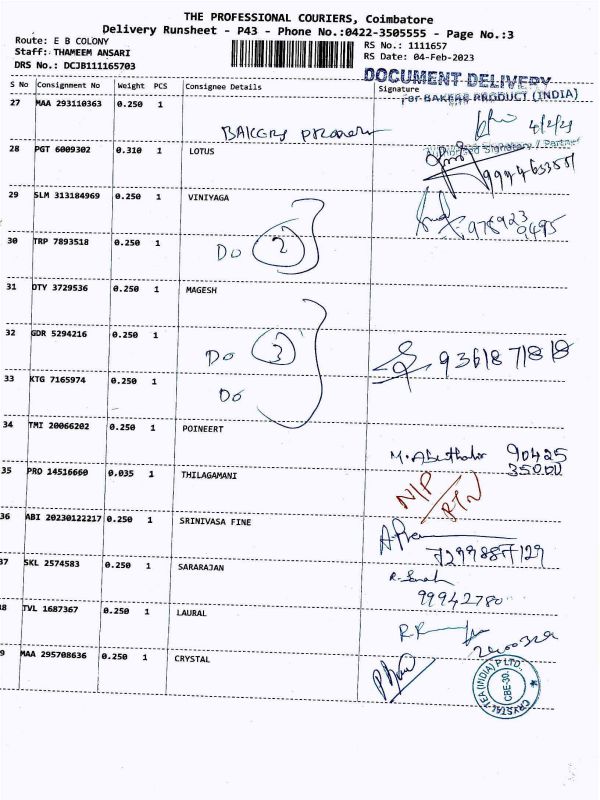 THE PROFESSIONAL COURIERS, Coimbatore
Delivery Runsheet - P43 - Phone No.:0422-3505555 - Page No.:3
Route: E B COLONY
Staff: THAMEEM ANSARI
DRS No.: DCJB111165703
RS No.: 1111657
RS Date: 04-Feb-2023
DOCUMENT DELIVERY
S No Consignment No Weight PCS Consignee Details Signature
For BAKERS PRODUCT (INDIA)
27 MAA 293110363 0.250 1
4/2/23
BAKERS
Authorised Signatory / Partner
28 PGT 6009302 0.310 1 LOTUS
29 SLM 313184969 0.250 1 VINIYAGA
30 TRP 7893518 0.250 1
Do 2
31 DTY 3729536 0.250 1 MAGESH
32 GDR 5294216 0.250 1
Do 3
9361871818
33 KTG 7165974 0.250 1
Do
34 TMI 20066202 0.250 1 POINEERT
90425
35 PRO 14516660 0.035 1 THILAGAMANI
N/P
36 ABI 20230122217 0.250 1 SRINIVASA FINE
7299887129
37 SKL 2574583 0.250 1 SARARAJAN
99942780
38 TVL 1687367 0.250 1 LAURAL
39 MAA 295708636 0.250 1 CRYSTAL
CRYSTAL TEA (INDIA) P LTD.
CBE-30.